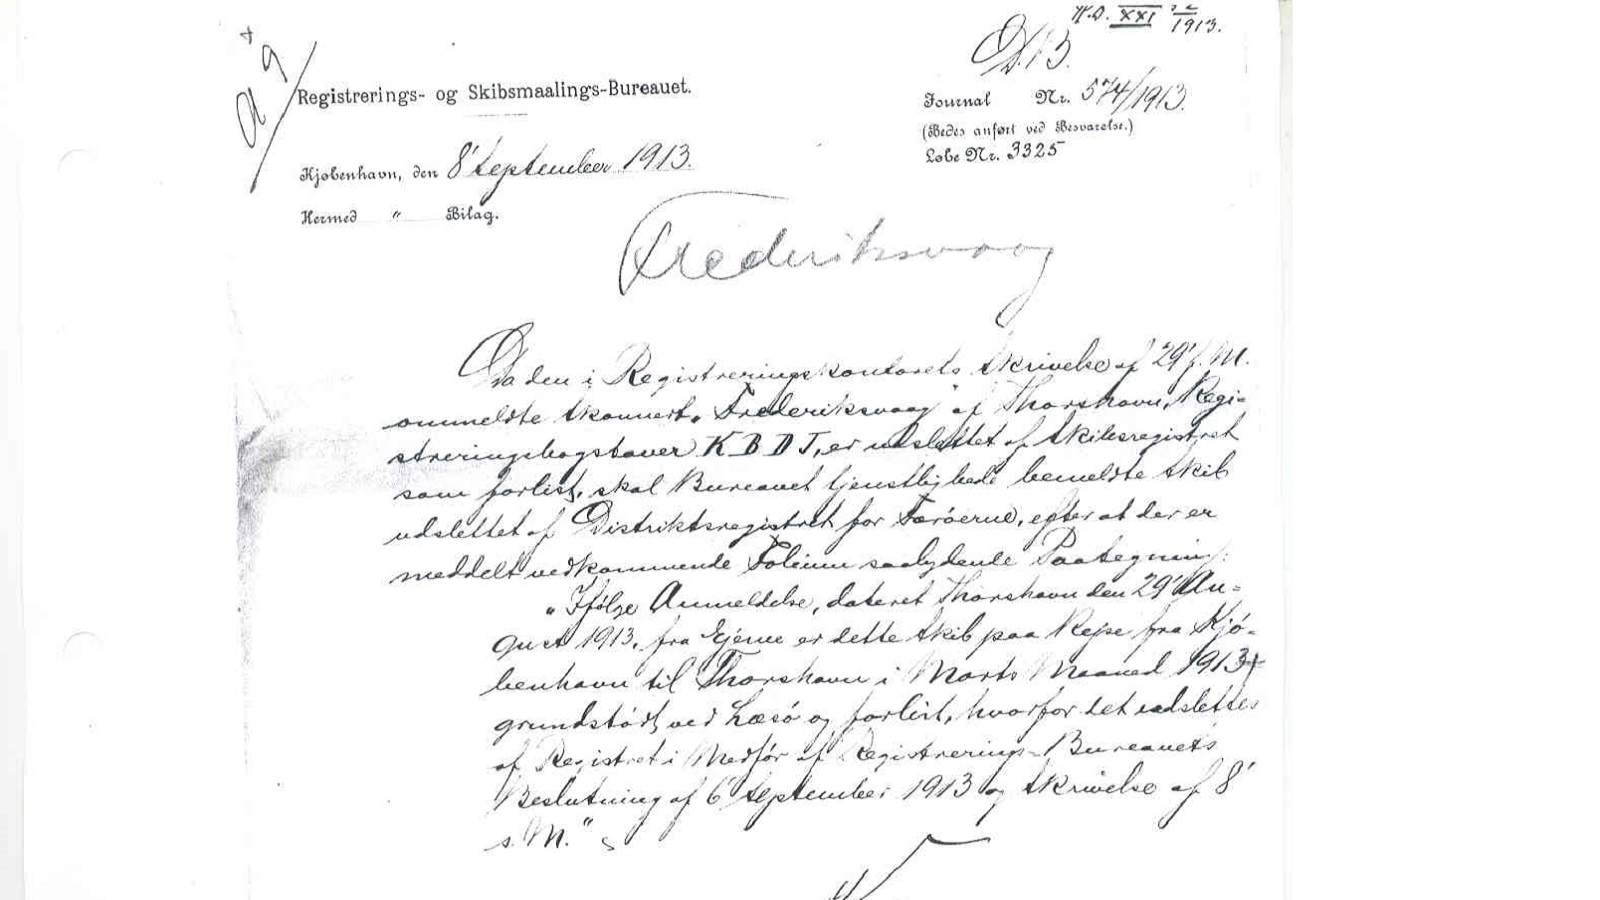 H.D. XXI 1913.
D. 13.
a 9
Registrerings- og Skibsmaalings-Bureauet.
Journal Nr. 574/1913.
(Bedes anført ved Besvarelse.)
Løbe Nr. 3325
Kjøbenhavn, den 8' September 1913.
Hermed " Bilag.
Frederiksvaag
Da den i Registreringskontorets Skrivelse af 29' f. M.
ommeldte Skonnert "Frederiksvaag" af Thorshavn, Regi-
streringsbogstaver K B D T, er udslettet af Skibsregistret
som forlist, skal Bureauet tjenstligbede bemeldte Skib
udslettet af Distriktsregistret for Færøerne, efter at der er
meddelt vedkommende Folium saalydende Paategning:
"Ifølge Anmeldelse, dateret Thorshavn den 29' Au-
gust 1913, fra Ejerne er dette Skib paa Rejse fra Kjø-
benhavn til Thorshavn i Marts Maaned 1913
grundstødt ved Læsø og forlist, hvorfor det udslettes
af Registret i Medfør af Registrerings-Bureauets
Beslutning af 6' September 1913 og Skrivelse af 8'
s. M."